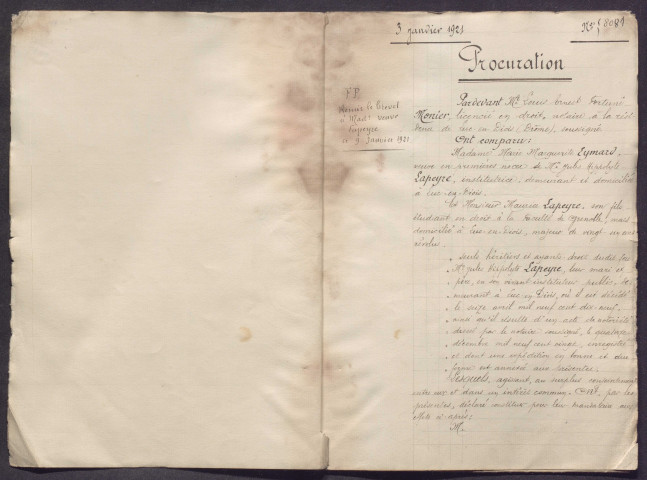 3 janvier 1921
8081
Procuration
F.P.
Remis le brevet
à Mad. veuve
Lapeyre
le 9 Janvier 1921
Pardevant Me Louis Ernest Fortuné
Monier, licencié en droit, notaire à la rési
dence de Luc-en-Diois (Drôme), soussigné
Ont comparu:
Madame Marie Marguerite Eymard,
veuve en premières noces de Mr Jules Hippolyte
Lapeyre, institutrice, demeurant et domiciliée
à Luc-en-Diois.
Et Monsieur Maurice Lapeyre, son fils,
étudiant en droit à la Faculté de Grenoble, mais
domicilié à Luc-en-Diois, majeur de vingt-un ans
révolus.
Seuls héritiers et ayants droit dudit feu
Mr Jules Hippolyte Lapeyre, leur mari et
père, en son vivant instituteur public, de-
meurant à Luc en Diois, où il est décédé
le seize avril mil neuf cent dix-neuf.
ainsi qu'il résulte d'un acte de notoriété
dressé par le notaire soussigné, le quatorze
décembre mil neuf cent vingt, enregistré
et dont une expédition en bonne et due
forme est annexée aux présentes.
Lesquels, agissant, au surplus conjointement
entre eux et dans un intérêt commun. Ont, par les
présentes, déclaré instituer pour leur mandataire aux
effets ci-après:
M.